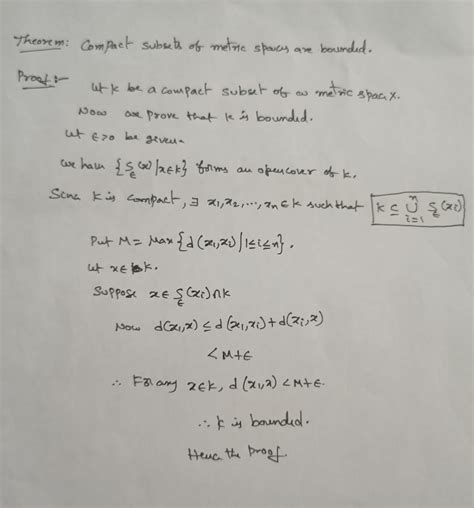 Theorem: Compact subsets of metric spaces are bounded.
Proof:-
Let K be a compact subset of a metric space X.
Now we prove that K is bounded.
Let ε>0 be given.
We have {S_ε(x) | x∈K} forms an open cover of K.
Since K is compact, ∃ x₁, x₂, ..., xₙ ∈ K such that K ⊆ ⋃ᵢ₌₁ⁿ S_ε(xᵢ)
Put M = Max {d(x₁, xᵢ) | 1≤i≤n}.
Let x∈ K.
Suppose x∈ S_ε(xᵢ)∩K
Now d(x₁,x) ≤ d(x₁,xᵢ)+d(xᵢ,x)
< M+ε
∴ For any x∈K, d(x₁,x) < M+ε.
∴ K is bounded.
Hence the Proof.